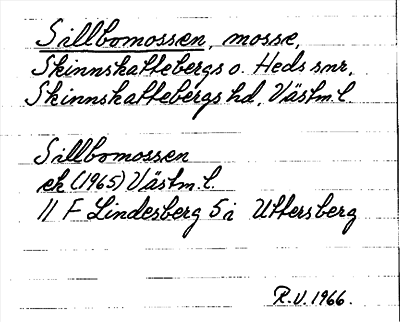 Sillbomossen, mosse,
Skinnskattebergs o. Heds snr,
Skinnskattebergs hd, Västm.l.
Sillbomossen
ek (1965) Västm.l.
11 F Lindesberg 5 i Uttersberg
R.V. 1966.